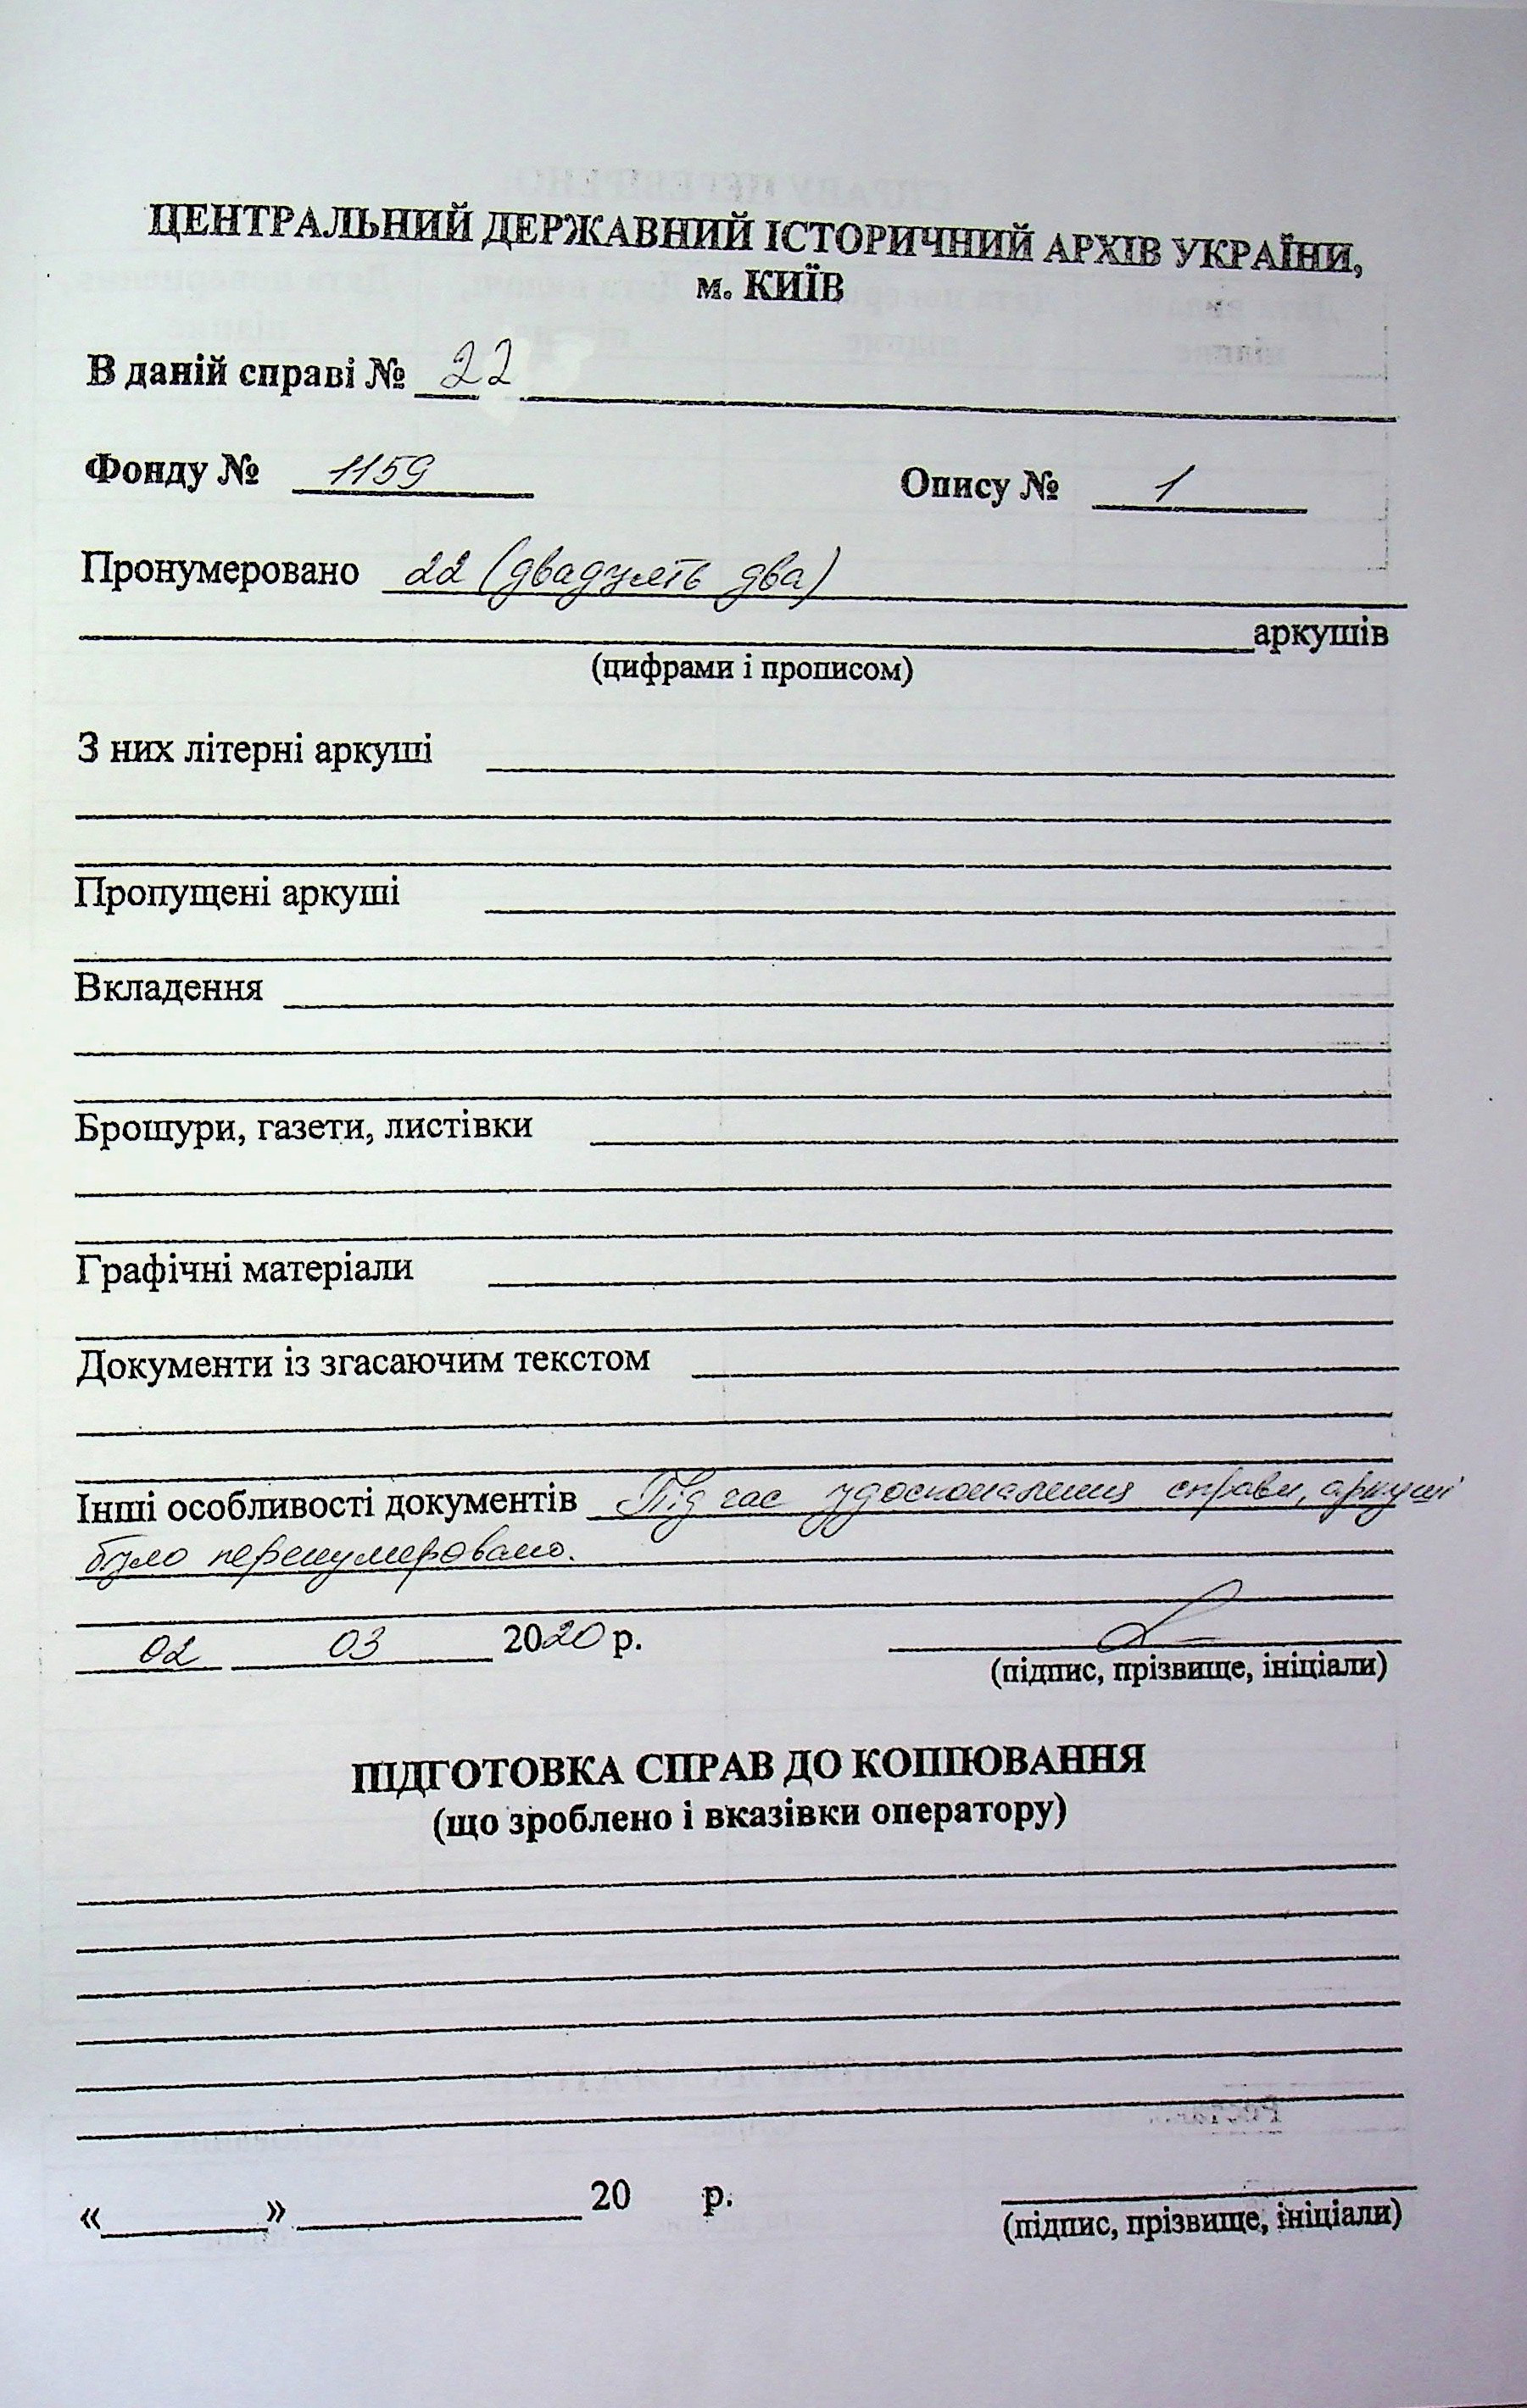 ЦЕНТРАЛЬНИЙ ДЕРЖАВНИЙ ІСТОРИЧНИЙ АРХІВ УКРАЇНИ,
м. КИЇВ
В даній справі № 22
Фонду № 1159 Опису № 1
Пронумеровано 22 (двадцять два)
аркушів
(цифрами і прописом)
З них літерні аркуші
Пропущені аркуші
Вкладення
Брошури, газети, листівки
Графічні матеріали
Документи із згасаючим текстом
Інші особливості документів Під час удосконалення справи, аркуші
було перенумеровано.
02 03 2020 р.
(підпис, прізвище, ініціали)
ПІДГОТОВКА СПРАВ ДО КОПІЮВАННЯ
(що зроблено і вказівки оператору)
« » 20 р.
(підпис, прізвище, ініціали)